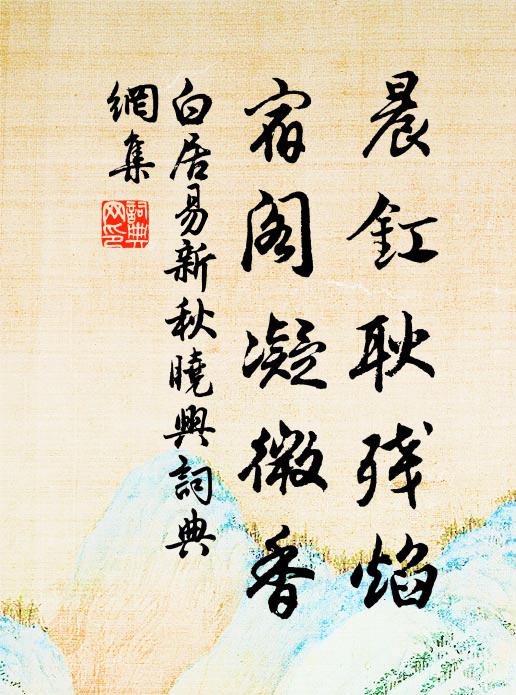 晨釭耿残焰
宿阁凝微香
白居易新秋曉興詞典
網集
詞典网印